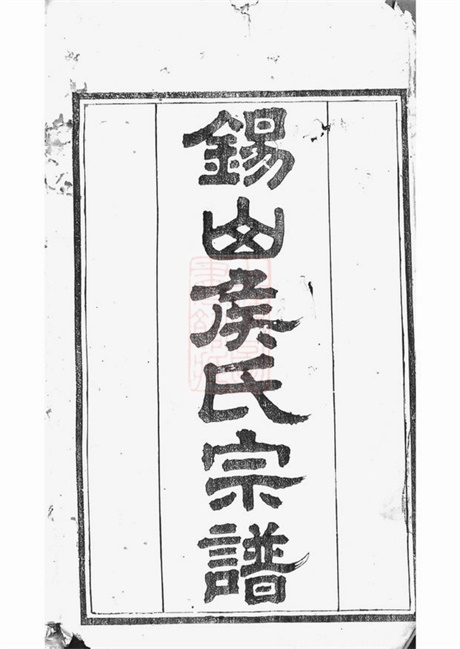 錫山矦氏宗譜